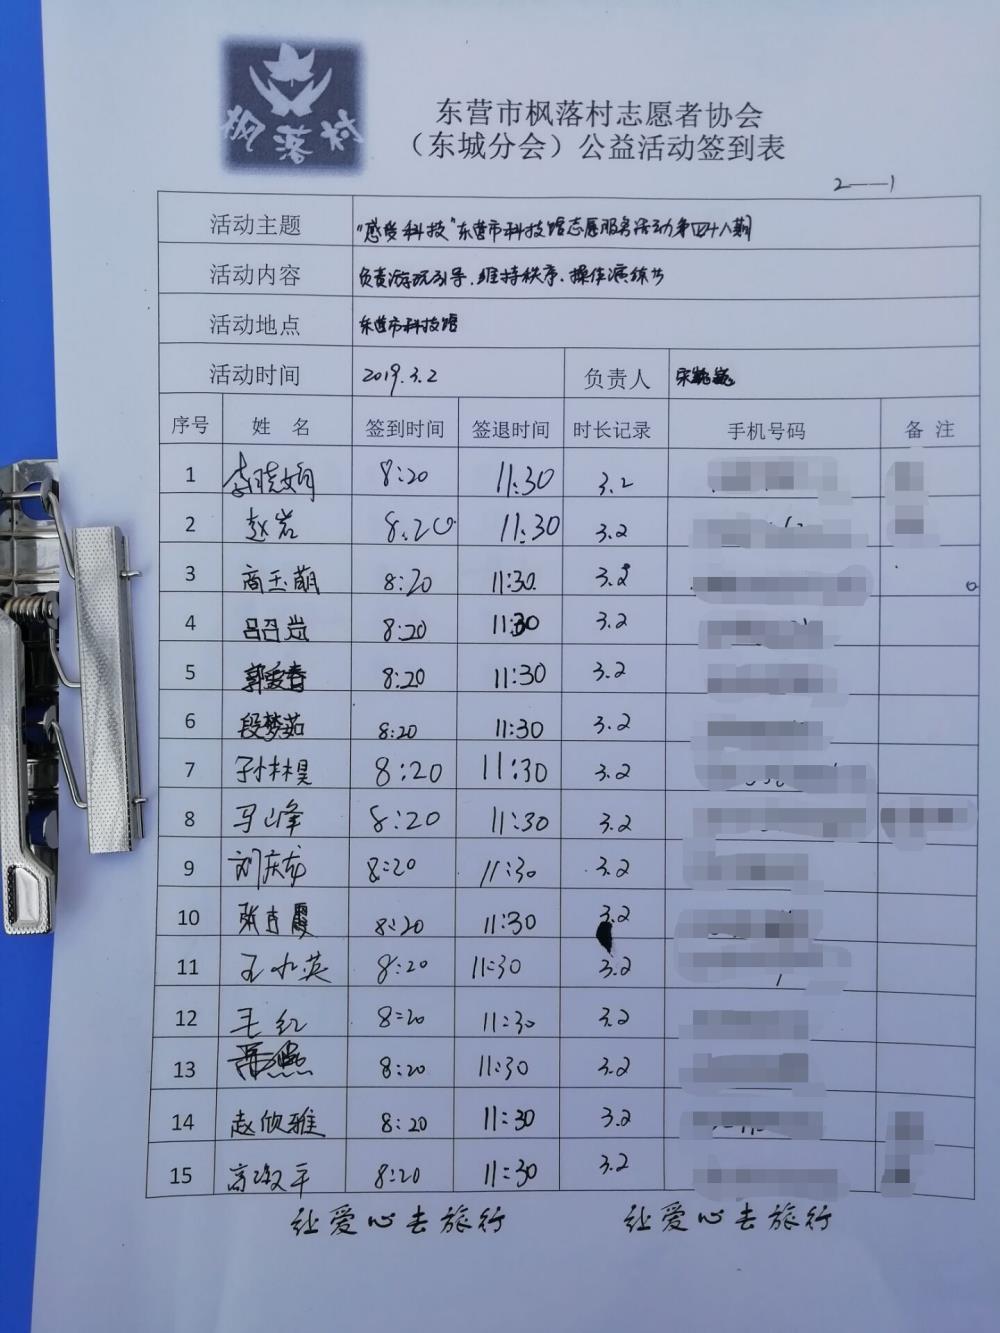 枫落村
东营市枫落村志愿者协会
（东城分会）公益活动签到表
2——1
活动主题 "感受科技"东营市科技馆志愿服务活动第四十八期
活动内容 负责游玩引导、维持秩序、操作演练等
活动地点 东营市科技馆
活动时间 2019.3.2 负责人 宋巍巍
序号 姓 名 签到时间 签退时间 时长记录 手机号码 备 注
1 李晓娟 8:20 11:30 3.2
2 赵岩 8:20 11:30 3.2
3 高玉萌 8:20 11:30 3.2
4 吕召岚 8:20 11:30 3.2
5 郭爱春 8:20 11:30 3.2
6 段梦茹 8:20 11:30 3.2
7 孙林昊 8:20 11:30 3.2
8 马山峰 8:20 11:30 3.2
9 刘庆龙 8:20 11:30 3.2
10 张吉霞 8:20 11:30 3.2
11 王水英 8:20 11:30 3.2
12 王红 8:20 11:30 3.2
13 8:20 11:30 3.2
14 赵欣雅 8:20 11:30 3.2
15 高淑平 8:20 11:30 3.2
让爱心去旅行 让爱心去旅行